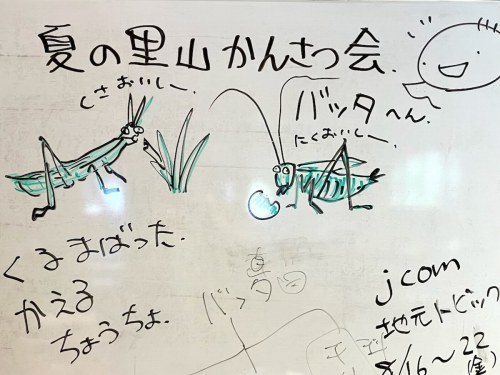 夏の里山かんさつ会.
バッタへん.
くさおいしー.
にくおいしー.
くるまばった.
かえる
ちょうちょ.
jcom
地元トピック
8/16〜22
(金)